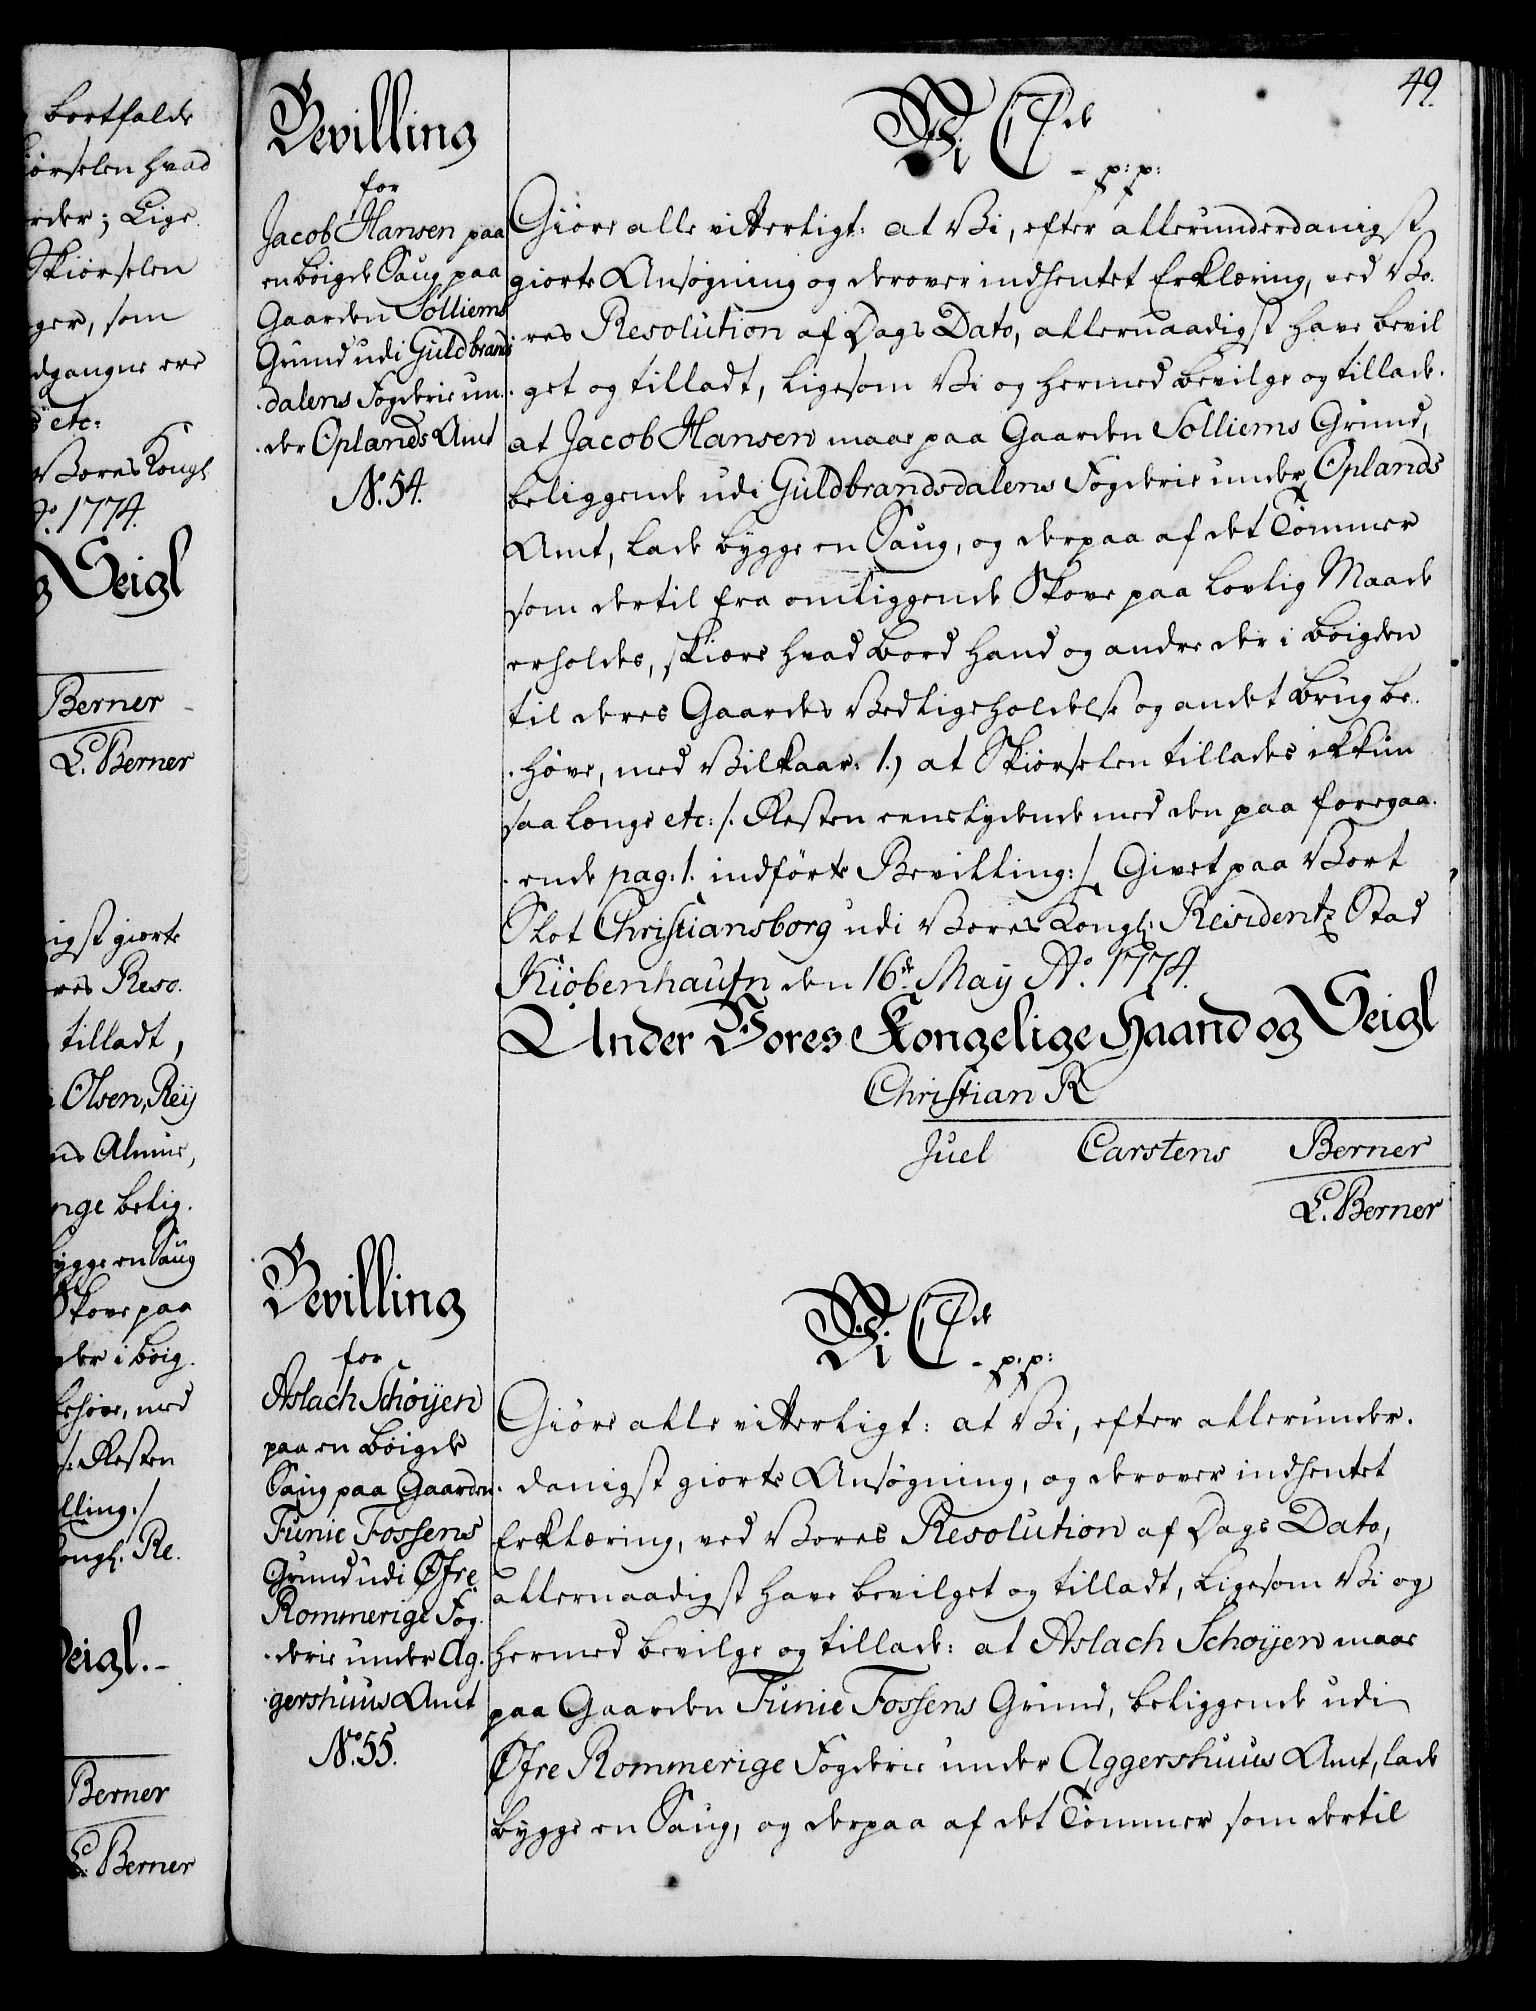 bortfalde
iørselen hvad
rder; Lige
Skiørselen
ger, som
dgangne ere
etc:
Vores Kongl
Ao 1774.
g Seigl
Berner
L. Berner
igst giorte
res Reso.
tilladt,
Olsen, Reij
ns Almue,
nge belig.
bygge en Saug
Skove paa
der i böig.
behöve, med
/: Resten
lling:/
Kongl: Re.
Seigl.
Berner
L. Berner
49.
Bevilling
for
Jacob Hansen paa
en böigde Saug paa
Gaarden Solliems
Grund udi Guldbrands
dalens Fogderie un.
der Oplands Amt
No. 54.
Vi C 7de - p: p:
Giøre alle vitterligt: at Vi, efter allerunderdanigst
giorte Ansøgning og derover indhentet Erklæring, ved Vo.
res Resolution af Dags Dato, allernaadigst have bevil
get og tilladt, ligesom Vi og hermed bevilge og tillade.
at Jacob Hansen maae paa Gaarden Solliems Grund,
beliggende udi Guldbrandsdalens Fogderie under Oplands
Amt, lade bygge en Saug, og derpaa af det Tömmer
som dertil fra omliggende Skove paa lovlig Maade
erholdes, skiære hvad Bord hand og andre der i böigden
til deres Gaardes Vedligeholdelse og andet Brug be.
høve, med Vilkaar: 1.) at Skiørselen tillades ikkun
saa længe etc: /: Resten eenslydende med den paa foregaa.
ende pag: 1. indførte Bevilling :/ Givet paa Vort
Slot Christiansborg udi Vores Kongl: Residentz Stad
Kiöbenhaufn den 16de May Ao. 1774.
Under Vores Kongelige Haand og Seigl
Christian R
Juel Carstens Berner
L. Berner
Bevilling
for
Aslach Schöijen
paa en böigde
Saug paa Gaarden
Funie Fossens
Grund udi Øfre
Rommerige Fog.
derie under Ag.
gershuus Amt
No. 55.
Vi C 7de - p: p:
Giøre alle vitterligt: at Vi, efter allerunder.
danigst giorte Ansøgning, og derover indhentet
Erklæring, ved Vores Resolution af Dags Dato,
allernaadigst have bevilget og tilladt, ligesom Vi og
hermed bevilge og tillade: at Aslach Schöijen maae
paa Gaarden Funie Fossens Grund, beliggende udi
Øfre Rommerige Fogderie under Aggershuus Amt, lade
bygge en Saug, og derpaa af det Tömmer som dertil